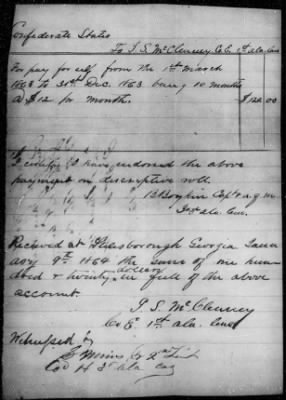 Confederate States
To J. S. McClenney Co E. 1st ala. Cav
For pay for self from the 1st March
1863 to 31st Dec. 1863 being 10 months
@ $12 for months. $120.00
I certify I have endorsed the above
payment on descriptive roll.
B Boykin Capt & a.q.m
3rd ala. Cav.
Received at Hilesborough Georgia Janu
ary 9th 1864 the sum of one hun
dred & twenty dollars in full of the above
account.
J. S. McClenney
Co E 1st ala. Cav
Witnessed by
2nd Lieut
Co H 3d ala Cav